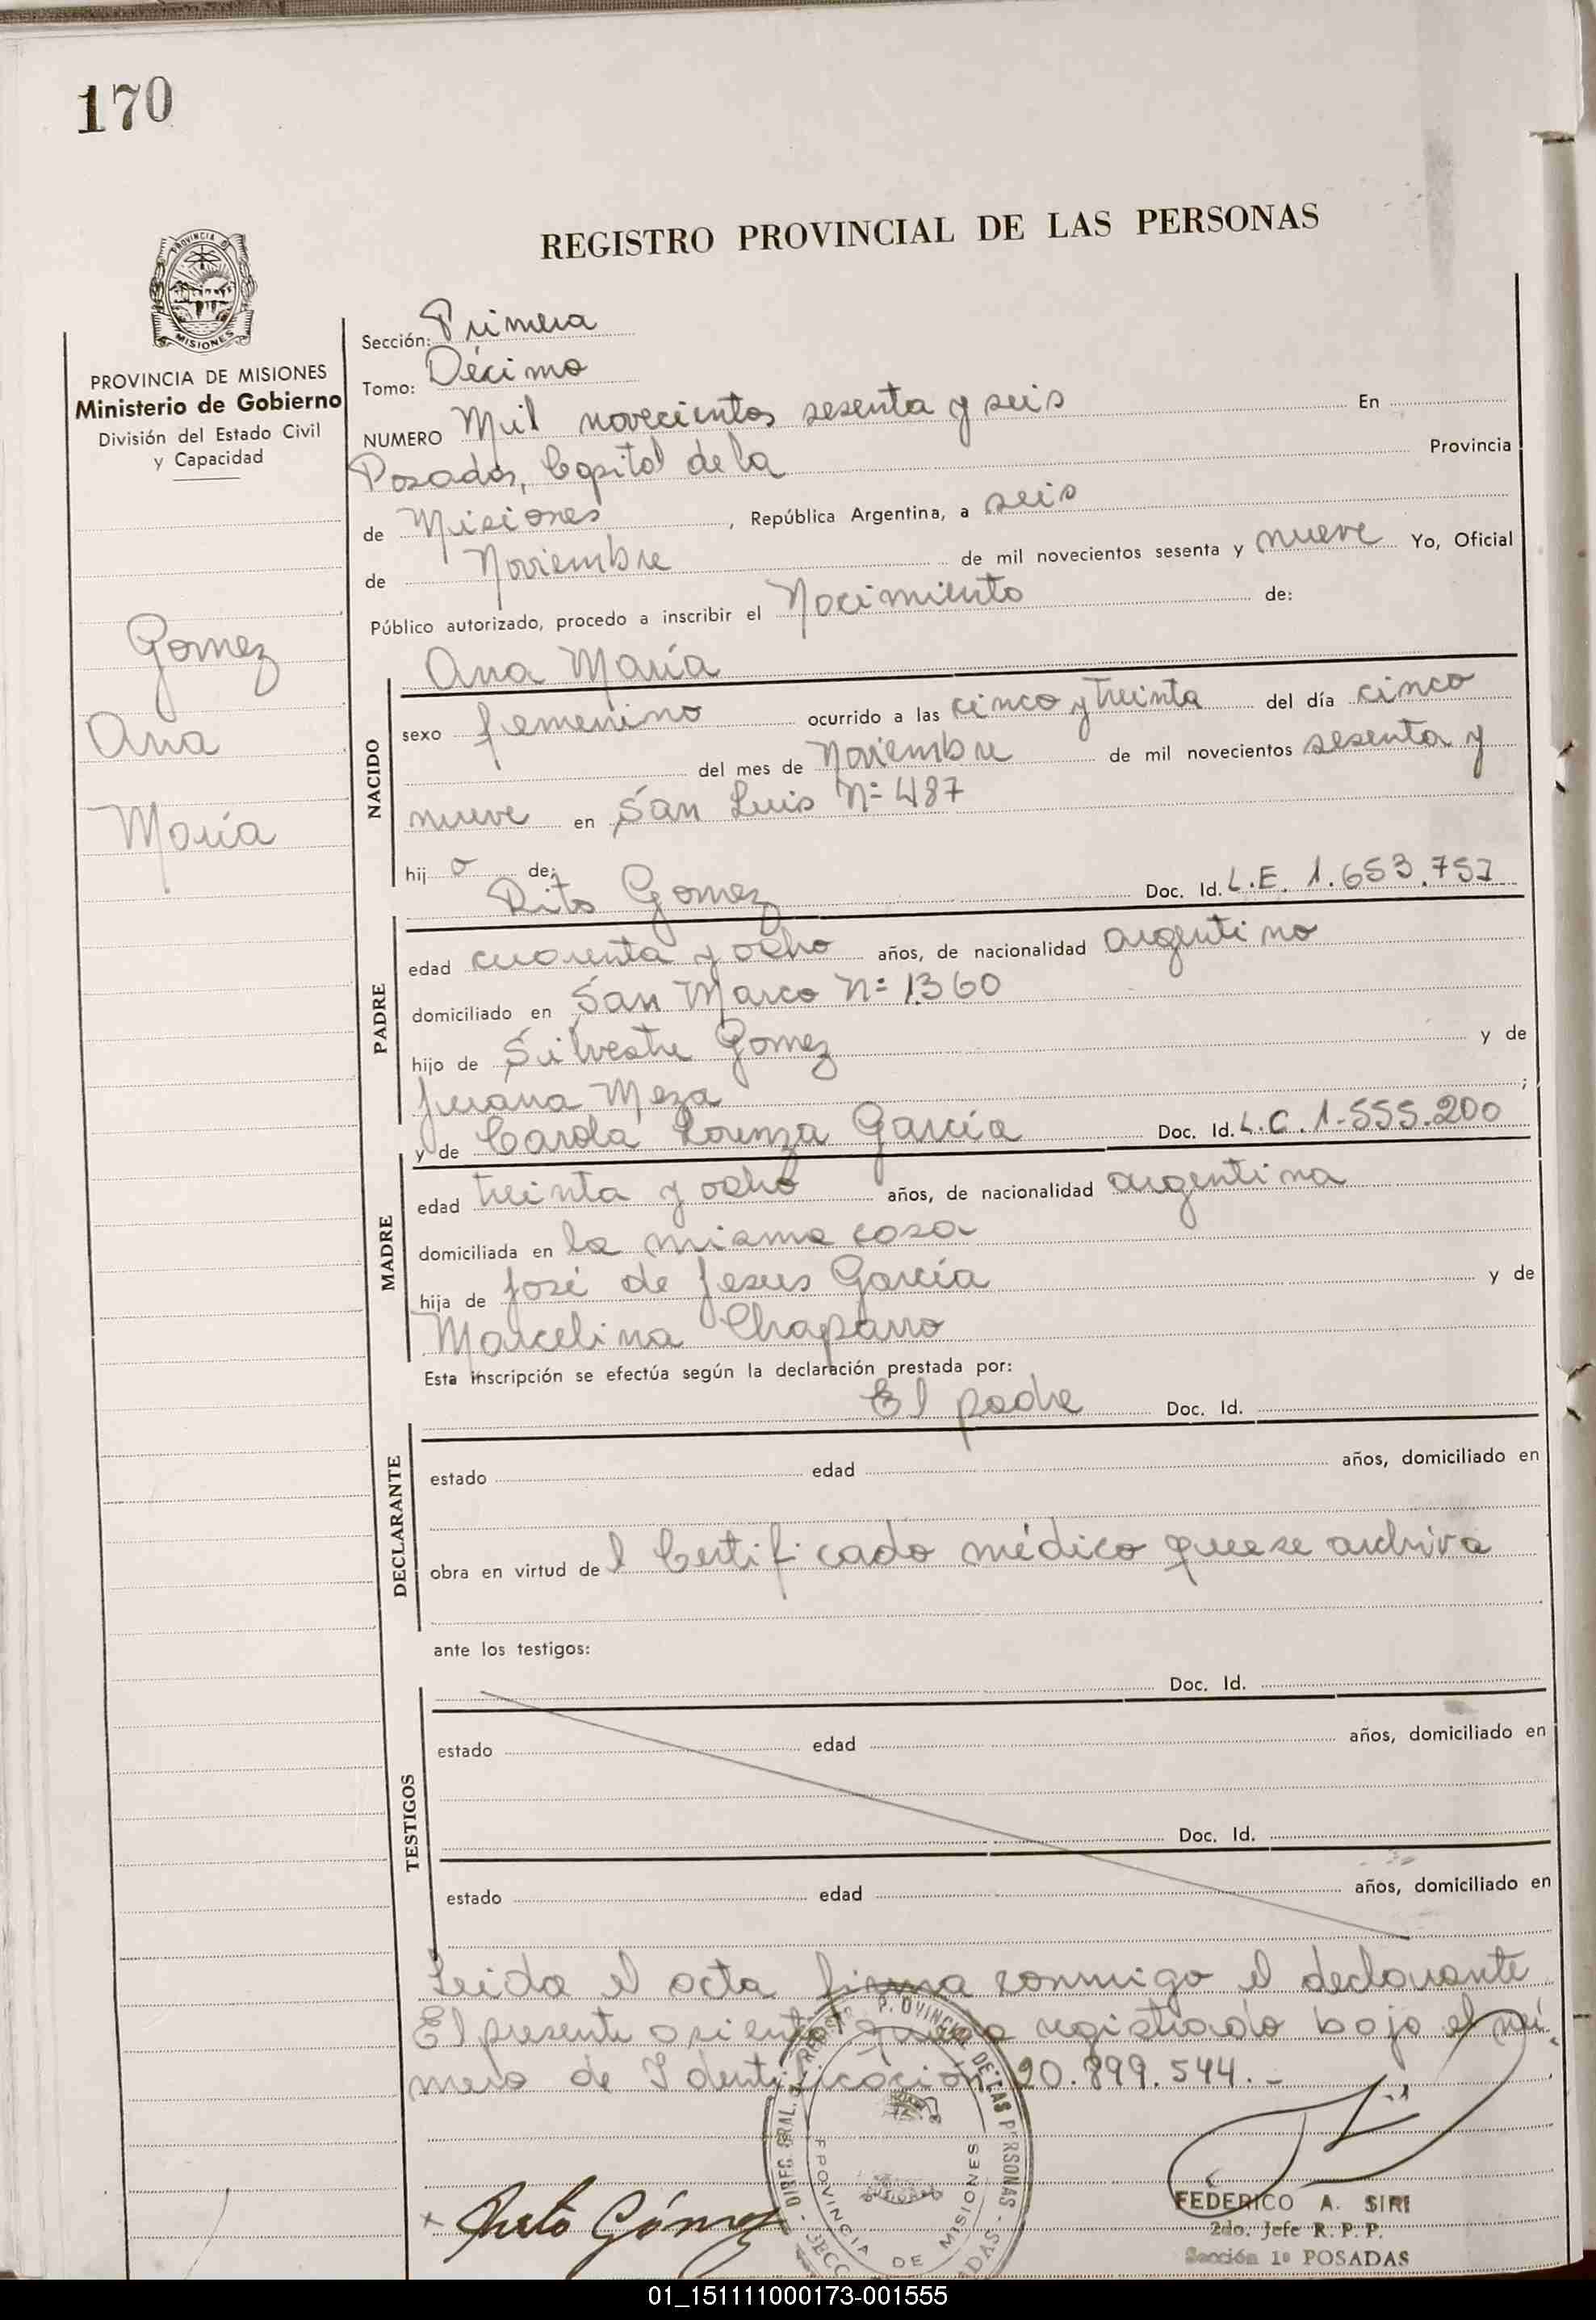 170
REGISTRO PROVINCIAL DE LAS PERSONAS
PROVINCIA DE
MISIONES
PROVINCIA DE MISIONES
Ministerio de Gobierno
División del Estado Civil
y Capacidad
Gomez
Ana
María
Sección: Primera
Tomo: Décimo
NUMERO Mil novecientos sesenta y seis En
Posadas, Capital de la Provincia
de Misiones, República Argentina, a seis
de Noviembre de mil novecientos sesenta y nueve Yo, Oficial
Público autorizado, procedo a inscribir el Nacimiento de:
Ana María
NACIDO
sexo femenino ocurrido a las cinco y treinta del día cinco
del mes de Noviembre de mil novecientos sesenta y
nueve en San Luis Nº 487
hij a de:
Rito Gomez Doc. Id. L.E. 1.653.757
PADRE
edad cuarenta y ocho años, de nacionalidad argentino
domiciliado en San Marco Nº 1360
hijo de Silvestre Gomez y de
Juana Meza ;
y de Carola Lorenza García Doc. Id. L.C. 1.555.200
MADRE
edad treinta y ocho años, de nacionalidad argentina
domiciliada en la misma casa
hija de José de Jesus García y de
Marcelina Chaparro
Esta inscripción se efectúa según la declaración prestada por:
El padre Doc. Id.
DECLARANTE
estado edad años, domiciliado en
obra en virtud del Certificado médico que se archiva
ante los testigos:
Doc. Id.
TESTIGOS
estado edad años, domiciliado en
Doc. Id.
estado edad años, domiciliado en
Leida el acta firma conmigo el declarante
El presente asiento queda registrado bajo el nú-
mero de Identificación 20.899.544.-
PROVINCIA DE MISIONES
Gómez
FEDERICO A. SIRI
2do. Jefe R. P. P.
Sección 1ª POSADAS
01_151111000173-001555